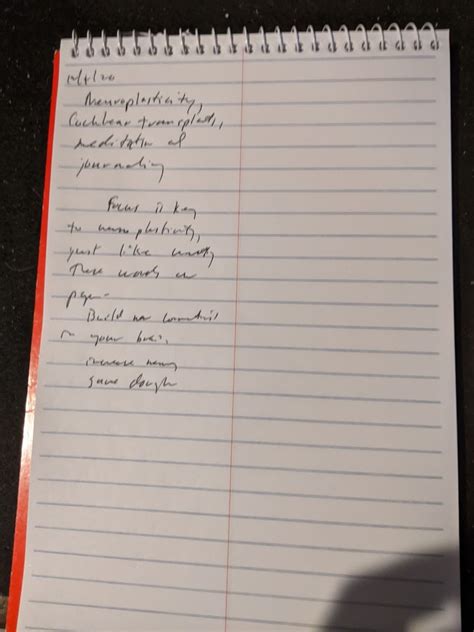 12/4/20
Neuroplasticity,
Cochlear transplants,
meditation and
journaling
Focus is key
to neuroplasticity,
just like
These words on
page
Build new connections
in your brain,
increase memory